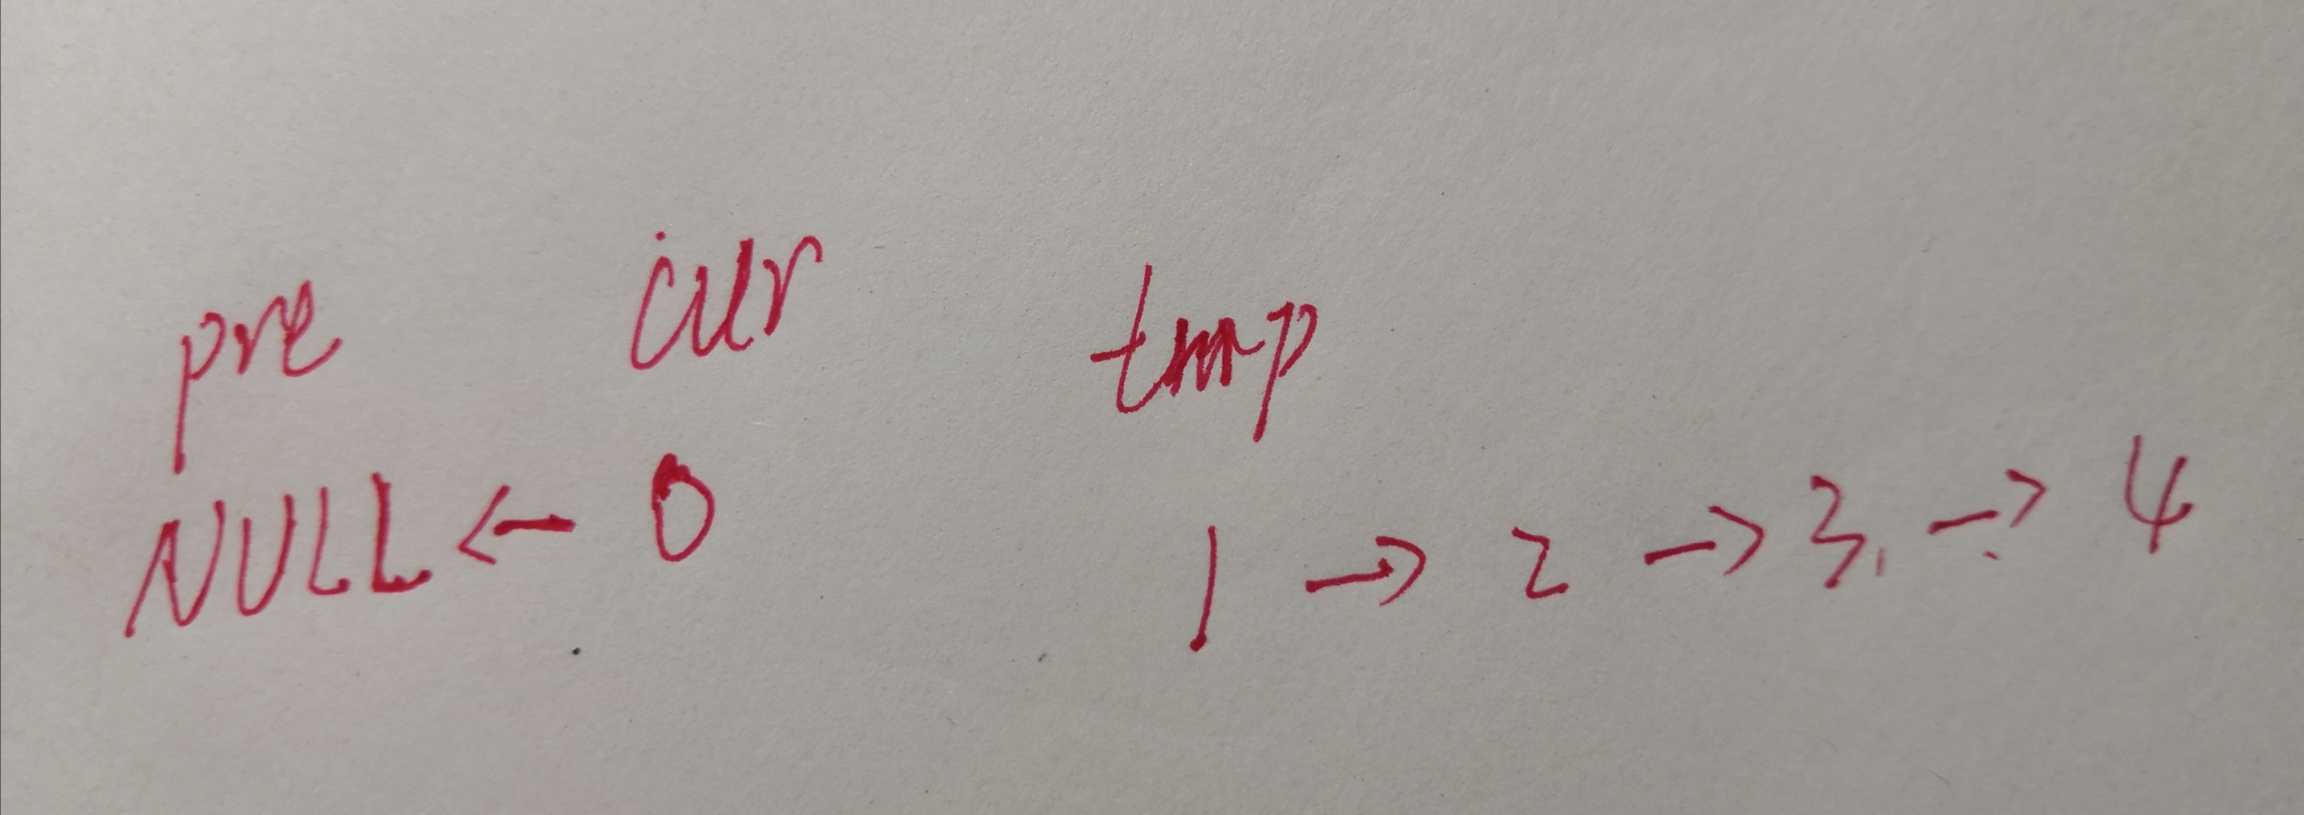 pre cur tmp
NULL ← 0 1 → 2 → 3 → 4